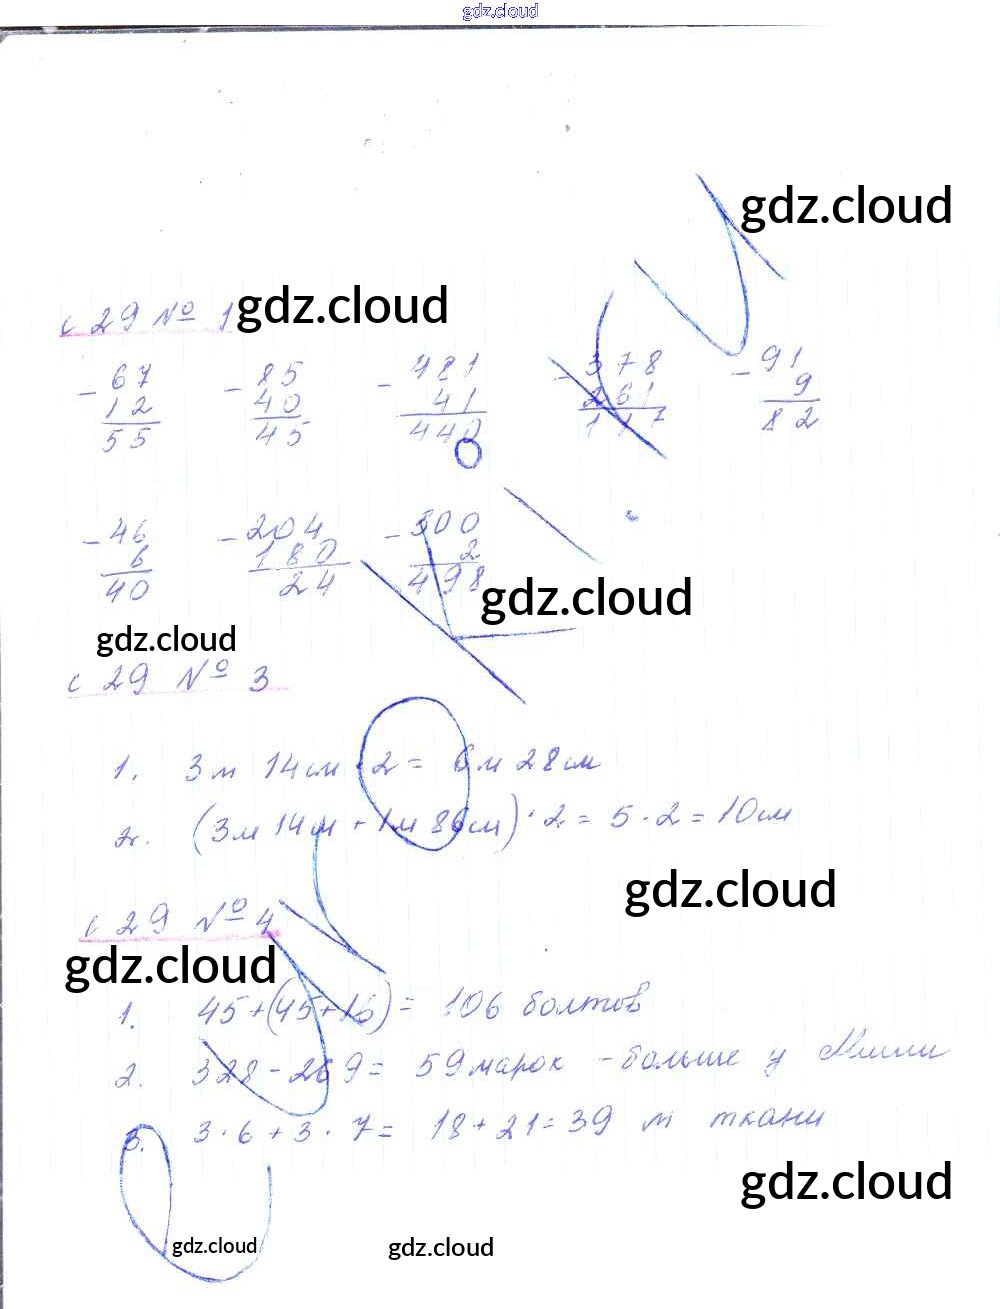 gdz.cloud
gdz.cloud
с 29 № 1 gdz.cloud
- 67 - 85 - 481 - 378 - 91
12 40 41 261 9
55 45 440 117 82
- 46 - 204 - 500
6 180 2
40 24 498
gdz.cloud
gdz.cloud
с 29 № 3
1. 3м 14см · 2 = 6м 28см
2. (3м 14см + 1м 86см) · 2 = 5 · 2 = 10см
gdz.cloud
с 29 № 4
gdz.cloud
1. 45 + (45 + 16) = 106 болтов
2. 328 - 269 = 59 марок - больше у Миши
3. 3 · 6 + 3 · 7 = 18 + 21 = 39 м ткани
gdz.cloud
gdz.cloud gdz.cloud